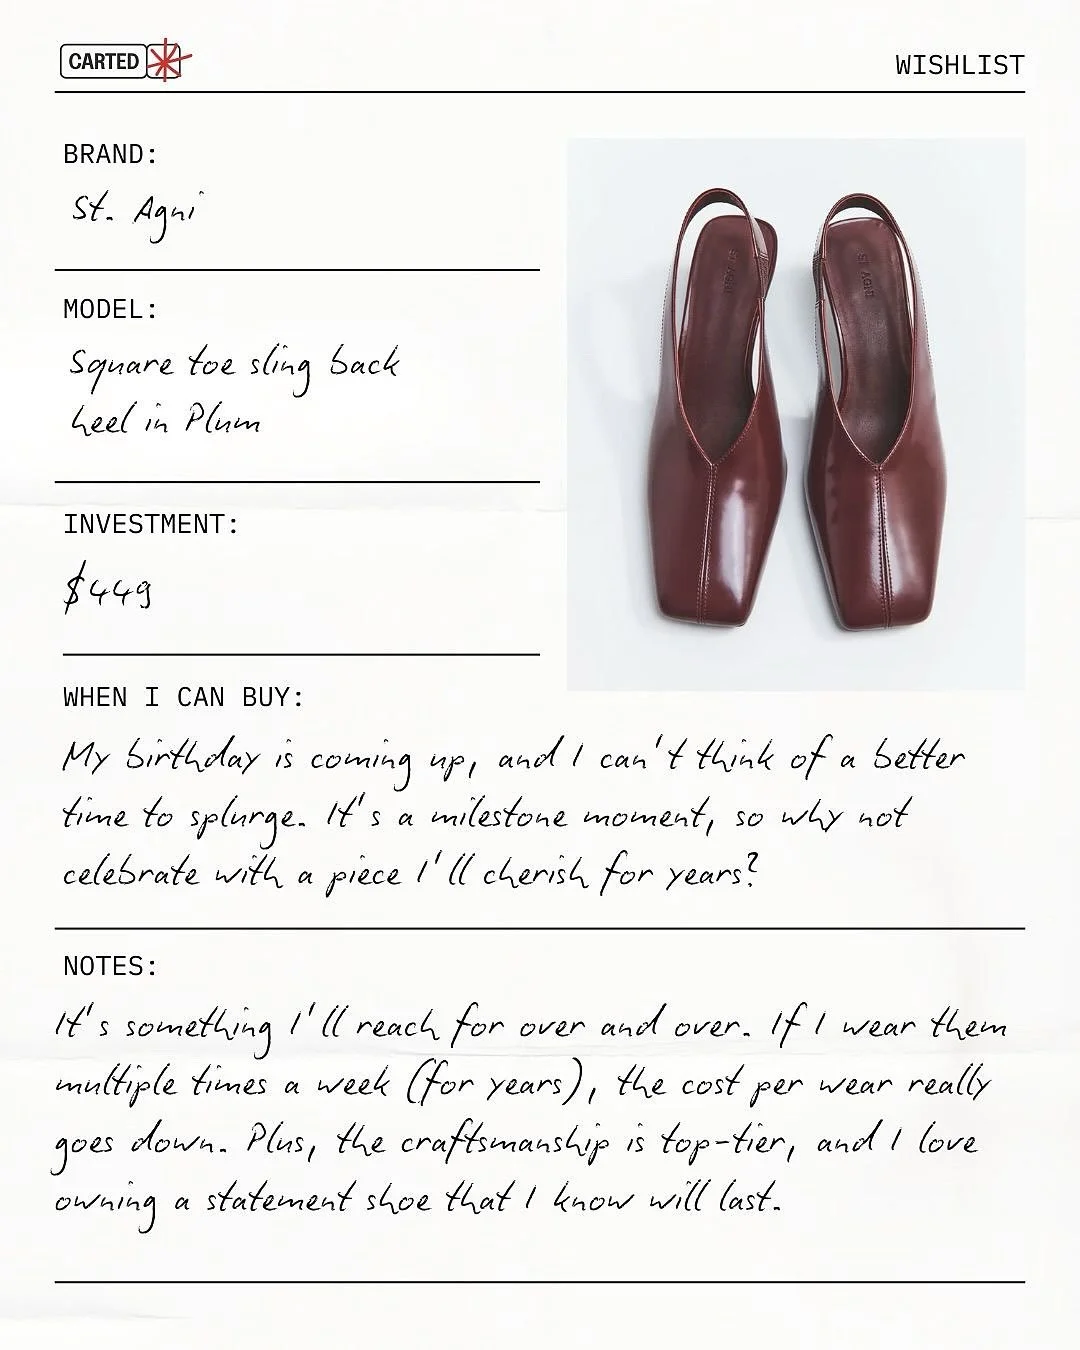 CARTED
WISHLIST
BRAND:
St. Agni
MODEL:
Square toe sling back
heel in Plum
INVESTMENT:
$449
ST. AGNI
ST. AGNI
WHEN I CAN BUY:
My birthday is coming up, and I can't think of a better
time to splurge. It's a milestone moment, so why not
celebrate with a piece I'll cherish for years?
NOTES:
It's something I'll reach for over and over. If I wear them
multiple times a week (for years), the cost per wear really
goes down. Plus, the craftsmanship is top-tier, and I love
owning a statement shoe that I know will last.